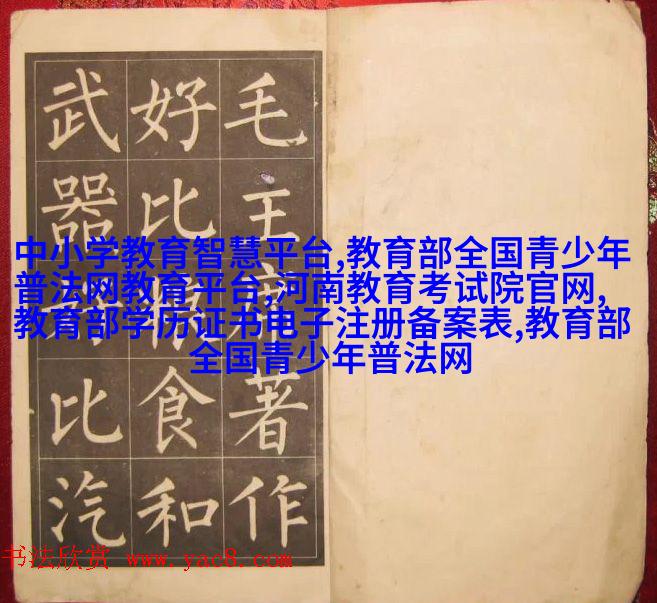 毛主著作
好比食和
武器比汽
中小学教育智慧平台,教育部全国青少年
普法网教育平台,河南教育考试院官网,
教育部学历证书电子注册备案表,教育部
全国青少年普法网
书法欣赏 www.yac8.com